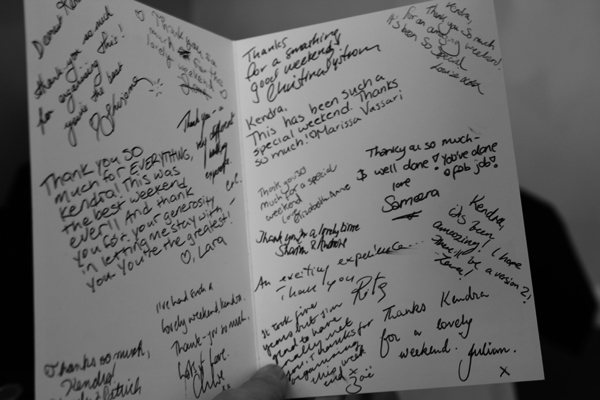 Dearest
thank you so much
for organising this!
you're the best
Thank you
lovely weekend
Thank you a
very different
weekend
experience.
Thank you so
much for EVERYTHING,
Kendra! This was
the best weekend
ever!! And thank
you for your generosity
in letting me stay with
you. You're the greatest!
♡, Lara
I've had such a
lovely weekend, Kendra.
Thank-you so much.
Lots of love.
Chloe
Thanks so much,
Kendra
Patrick
Thanks
for a smashing
good weekend!
Christina
Kendra,
This has been such a
special weekend. Thanks
so much! ♡ Marissa Vassari
Thank you so
much for a special
weekend
love
Elizabeth Anne
Thank you for a lovely time
Sharon & Andrew
An exciting experience...
Thank you
Rita
It took five
years but I'm
glad to have
finally met
you! Thanks for
organising
this
Zoë
Kendra,
Thank you so much
for an amazing weekend!
It's been so special
Louise xxx
Thank you so much-
& well done! You've done
a fab job!
love
Samara
Kendra,
It's been
amazing! I hope
there'll be a version 2!
Thanks Kendra
for a lovely
weekend. Julian.
x